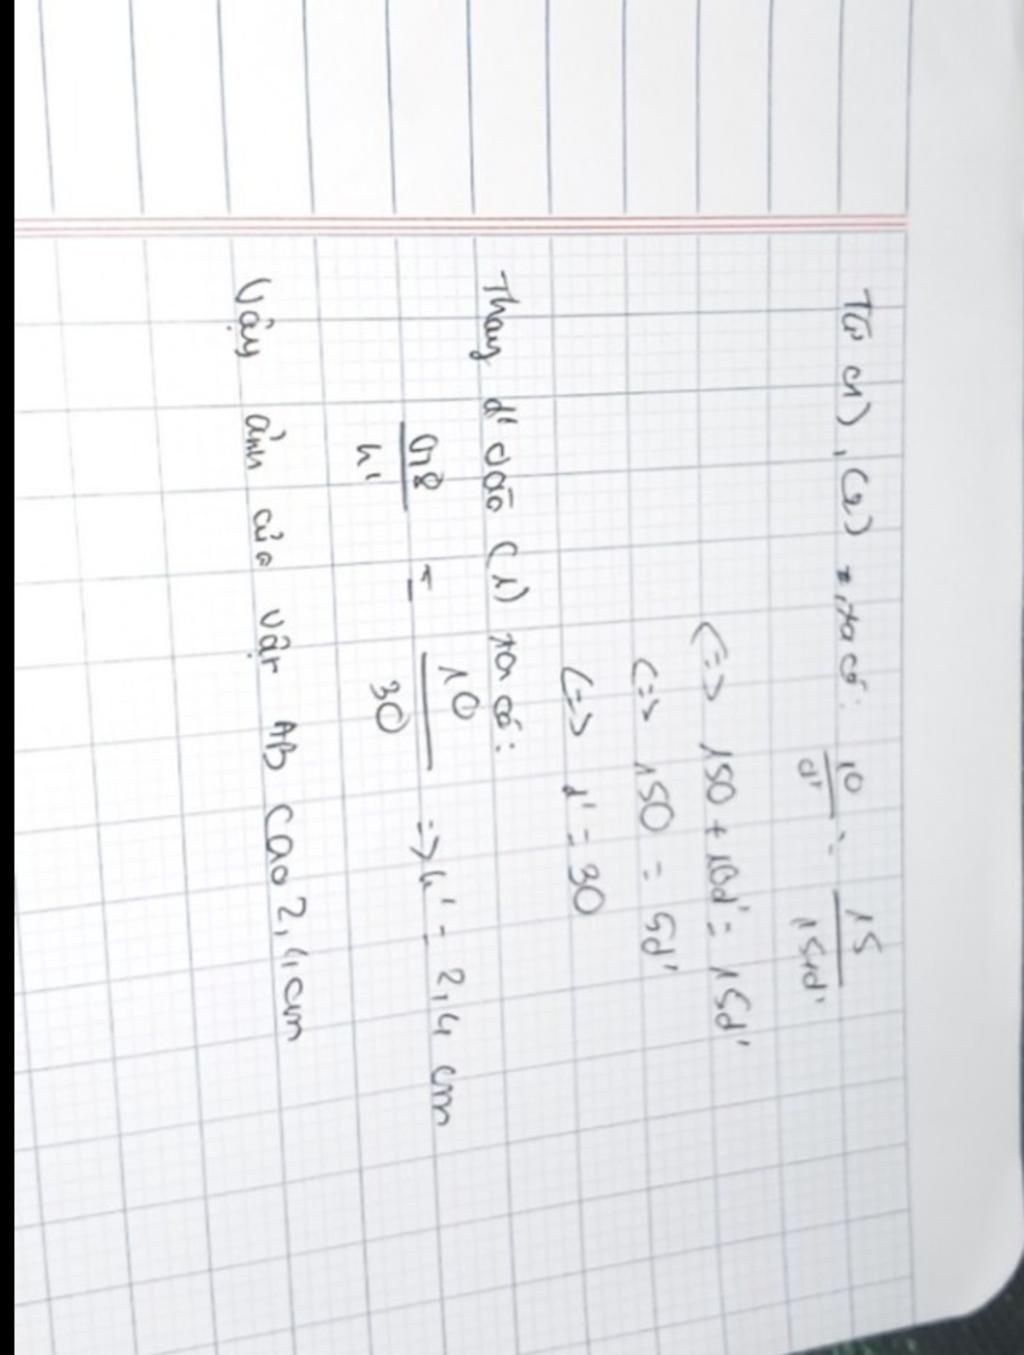 Từ (1), (2) ta có: 10/d' = 15/15+d'
<=> 150 + 10d' = 15d'
<=> 150 = 5d'
<=> d' = 30
Thay d' vào (1) ta có:
0,8/h' = 10/30 => h' = 2,4 cm
Vậy ảnh của vật AB cao 2,4 cm